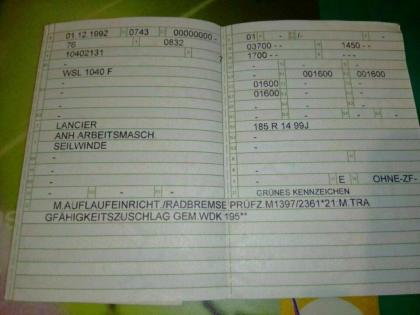 01.12.1992 0743 00000000 -
76 1 0832
10402131
-
WSL 1040 F
-
-
-
LANCIER
ANH ARBEITSMASCH
SEILWINDE
-
-
-
- - -
01 - -/-
03700 - - 1450 - -
1700 - - -
-
- 001600 001600
01600 - -
01600 - -
- -
185 R 14 99J
-
-
-
-
- E OHNE-ZF-
- GRÜNES KENNZEICHEN
M.AUFLAUFEINRICHT./RADBREMSE PRÜFZ M1397/2361*21:M.TRA
GFÄHIGKEITSZUSCHLAG GEM.WDK 195**